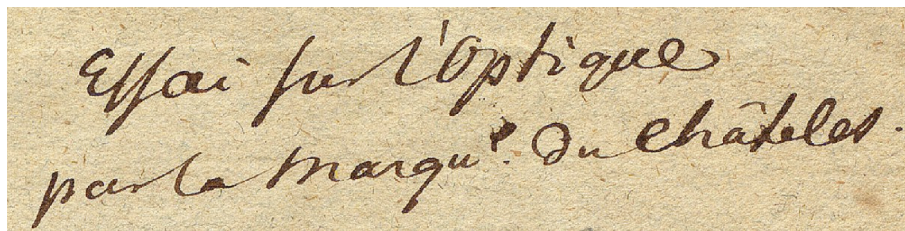 Essai sur l'Optique
par la Marqu.e du Châtelet.